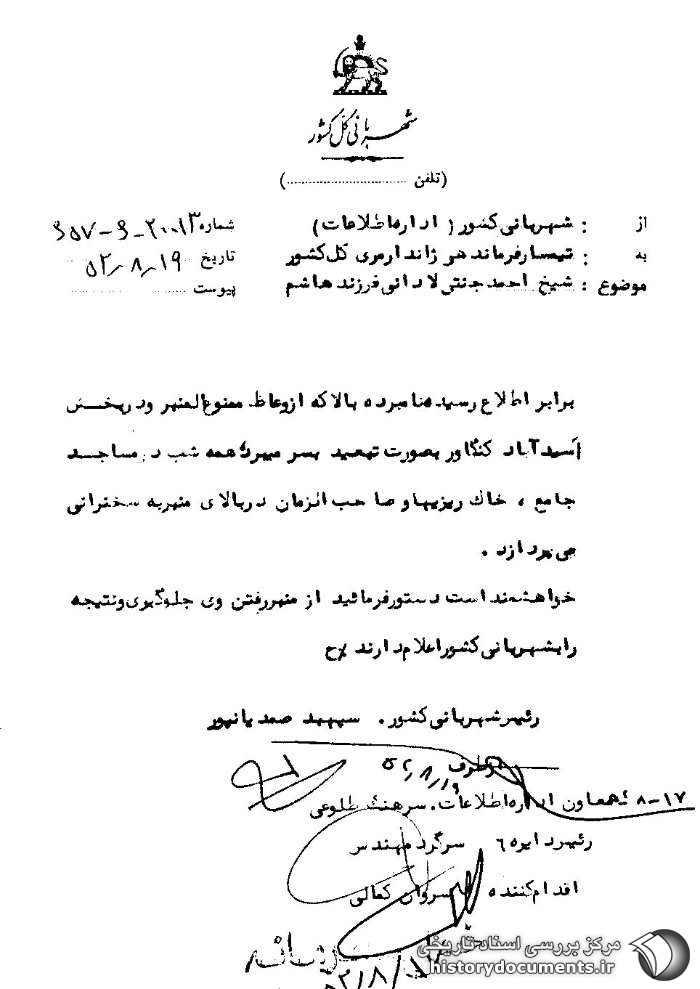 شهربانی کل کشور
(تلفن ..............................)
از : شهربانی کشور (اداره اطلاعات)
شماره
به : تیمسار فرماندهی ژاندارمری کل کشور
تاریخ ۵۲٫۸٫۱۹
موضوع : شیخ احمد جنتی لادانی فرزند هاشم
پیوست ..............................
برابر اطلاع رسیده نامبرده بالا که از وعاظ ممنوع المنبر و در بخش
اسیدآباد کنگاور بصورت تبعید بسر میبرد همه شب در مساجد
جامع ، خاك ریزیها و صاحب الزمان در بالای منبر به سخنرانی
می پردازد .
خواهشمند است دستور فرمائید از منبر رفتن وی جلوگیری و نتیجه
را بشهربانی کشور اعلام دارند ح
رئیس شهربانی کشور . سپهبد صمدیانپور
از طرف ۵۲/۸/۱۹
۸-۱۷ معاون اداره اطلاعات . سرهنگ طلوعی
رئیس دایره ٦ سرگرد مهندس
اقدام کننده سروان کمالی
۵۲/۸/
مرکز بررسی اسناد تاریخی
historydocuments.ir